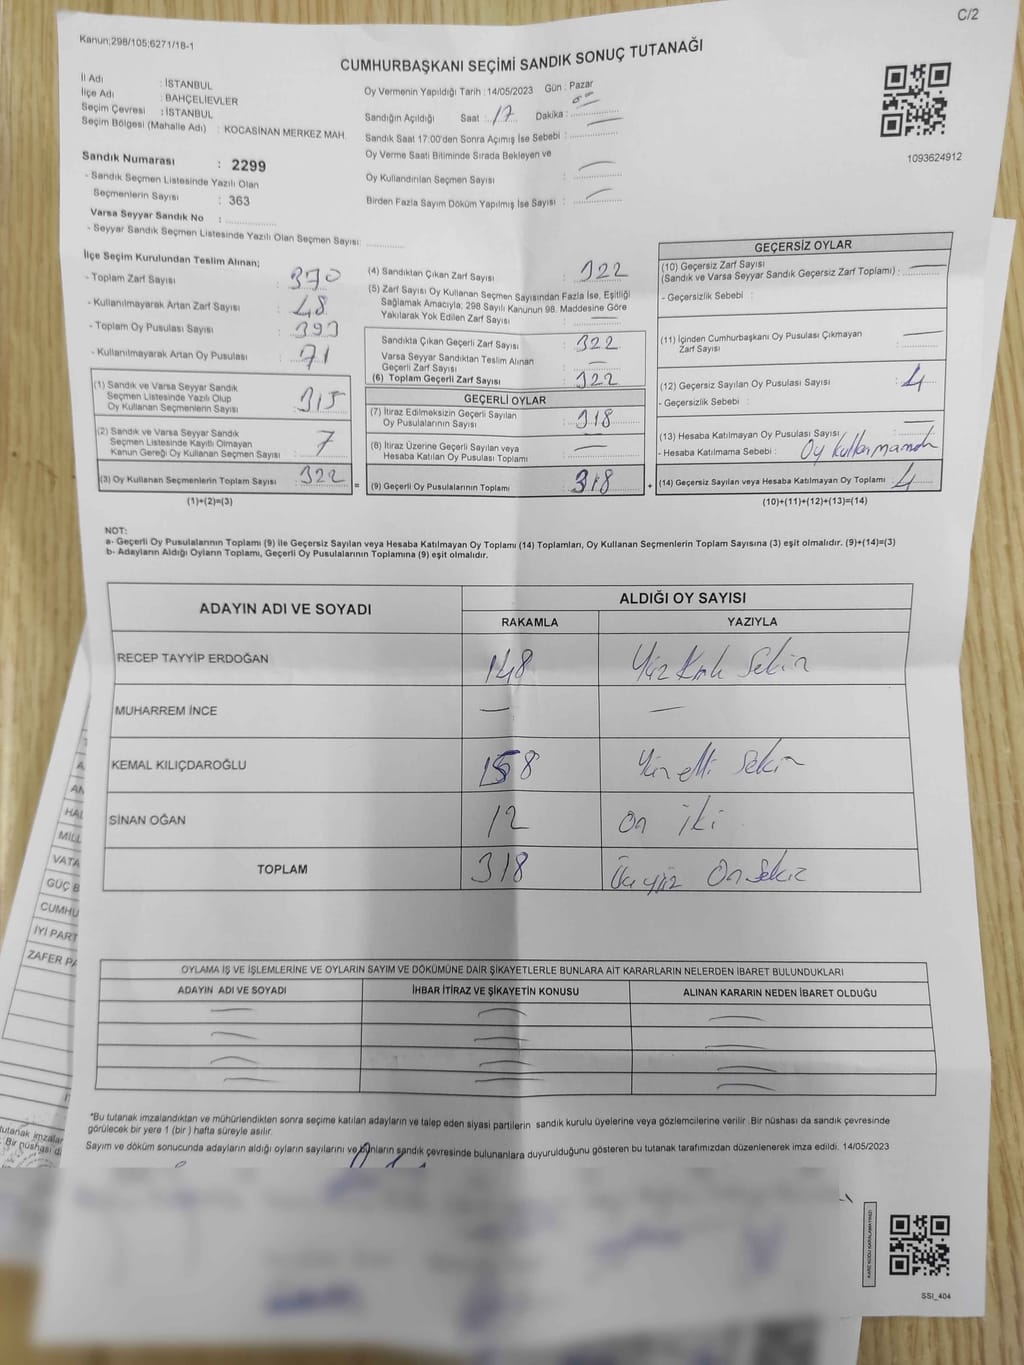 C/2
Kanun;298/105;6271/18-1
CUMHURBAŞKANI SEÇİMİ SANDIK SONUÇ TUTANAĞI
İl Adı : İSTANBUL
İlçe Adı : BAHÇELİEVLER
Seçim Çevresi : İSTANBUL
Seçim Bölgesi (Mahalle Adı) : KOCASİNAN MERKEZ MAH.
Sandık Numarası : 2299
- Sandık Seçmen Listesinde Yazılı Olan
Seçmenlerin Sayısı : 363
Varsa Seyyar Sandık No :
- Seyyar Sandık Seçmen Listesinde Yazılı Olan Seçmen Sayısı:
Oy Vermenin Yapıldığı Tarih : 14/05/2023 Gün : Pazar
Sandığın Açıldığı Saat : 17 Dakika : 00
Sandık Saat 17:00'den Sonra Açımış İse Sebebi :
Oy Verme Saati Bitiminde Sırada Bekleyen ve
Oy Kullandırılan Seçmen Sayısı :
Birden Fazla Sayım Döküm Yapılmış İse Sayısı :
1093624912
İlçe Seçim Kurulundan Teslim Alınan;
- Toplam Zarf Sayısı : 370
- Kullanılmayarak Artan Zarf Sayısı : 48
- Toplam Oy Pusulası Sayısı : 393
- Kullanılmayarak Artan Oy Pusulası : 71
(1) Sandık ve Varsa Seyyar Sandık
Seçmen Listesinde Yazılı Olup
Oy Kullanan Seçmenlerin Sayısı : 315
(2) Sandık ve Varsa Seyyar Sandık
Seçmen Listesinde Kayıtlı Olmayan
Kanun Gereği Oy Kullanan Seçmen Sayısı : 7
(3) Oy Kullanan Seçmenlerin Toplam Sayısı : 322 =
(1)+(2)=(3)
(4) Sandıktan Çıkan Zarf Sayısı : 322
(5) Zarf Sayısı Oy Kullanan Seçmen Sayısından Fazla İse, Eşitliği
Sağlamak Amacıyla; 298 Sayılı Kanunun 98. Maddesine Göre
Yakılarak Yok Edilen Zarf Sayısı :
Sandıkta Çıkan Geçerli Zarf Sayısı : 322
Varsa Seyyar Sandıktan Teslim Alınan
Geçerli Zarf Sayısı :
(6) Toplam Geçerli Zarf Sayısı : 322
GEÇERLİ OYLAR
(7) İtiraz Edilmeksizin Geçerli Sayılan
Oy Pusulalarının Sayısı : 318
(8) İtiraz Üzerine Geçerli Sayılan veya
Hesaba Katılan Oy Pusulası Toplamı :
(9) Geçerli Oy Pusulalarının Toplamı : 318 +
GEÇERSİZ OYLAR
(10) Geçersiz Zarf Sayısı
(Sandık ve Varsa Seyyar Sandık Geçersiz Zarf Toplamı) :
- Geçersizlik Sebebi :
(11) İçinden Cumhurbaşkanı Oy Pusulası Çıkmayan
Zarf Sayısı :
(12) Geçersiz Sayılan Oy Pusulası Sayısı : 4
- Geçersizlik Sebebi :
(13) Hesaba Katılmayan Oy Pusulası Sayısı :
- Hesaba Katılmama Sebebi : Oy kullanmamak
(14) Geçersiz Sayılan veya Hesaba Katılmayan Oy Toplamı : 4
(10)+(11)+(12)+(13)=(14)
NOT:
a- Geçerli Oy Pusulalarının Toplamı (9) ile Geçersiz Sayılan veya Hesaba Katılmayan Oy Toplamı (14) Toplamları, Oy Kullanan Seçmenlerin Toplam Sayısına (3) eşit olmalıdır. (9)+(14)=(3)
b- Adayların Aldığı Oyların Toplamı, Geçerli Oy Pusulalarının Toplamına (9) eşit olmalıdır.
ADAYIN ADI VE SOYADI ALDIĞI OY SAYISI
RAKAMLA YAZIYLA
RECEP TAYYİP ERDOĞAN 148 Yüz Kırk Sekiz
MUHARREM İNCE — —
KEMAL KILIÇDAROĞLU 158 Yüz elli Sekiz
SİNAN OĞAN 12 On iki
TOPLAM 318 Üçyüz On Sekiz
OYLAMA İŞ VE İŞLEMLERİNE VE OYLARIN SAYIM VE DÖKÜMÜNE DAİR ŞİKAYETLERLE BUNLARA AİT KARARLARIN NELERDEN İBARET BULUNDUKLARI
ADAYIN ADI VE SOYADI İHBAR İTİRAZ VE ŞİKAYETİN KONUSU ALINAN KARARIN NEDEN İBARET OLDUĞU
*Bu tutanak imzalandıktan ve mühürlendikten sonra seçime katılan adayların ve talep eden siyasi partilerin sandık kurulu üyelerine veya gözlemcilerine verilir. Bir nüshası da sandık çevresinde
görülecek bir yere 1 (bir ) hafta süreyle asılır.
Sayım ve döküm sonucunda adayların aldığı oyların sayılarını ve bunların sandık çevresinde bulunanlara duyurulduğunu gösteren bu tutanak tarafımızdan düzenlenerek imza edildi. 14/05/2023
SSI_404
HA
MİLL
VATA
GÜÇ B
CUMHU
İYİ PART
ZAFER PA
tutanak imzalar
Bir nüshası d